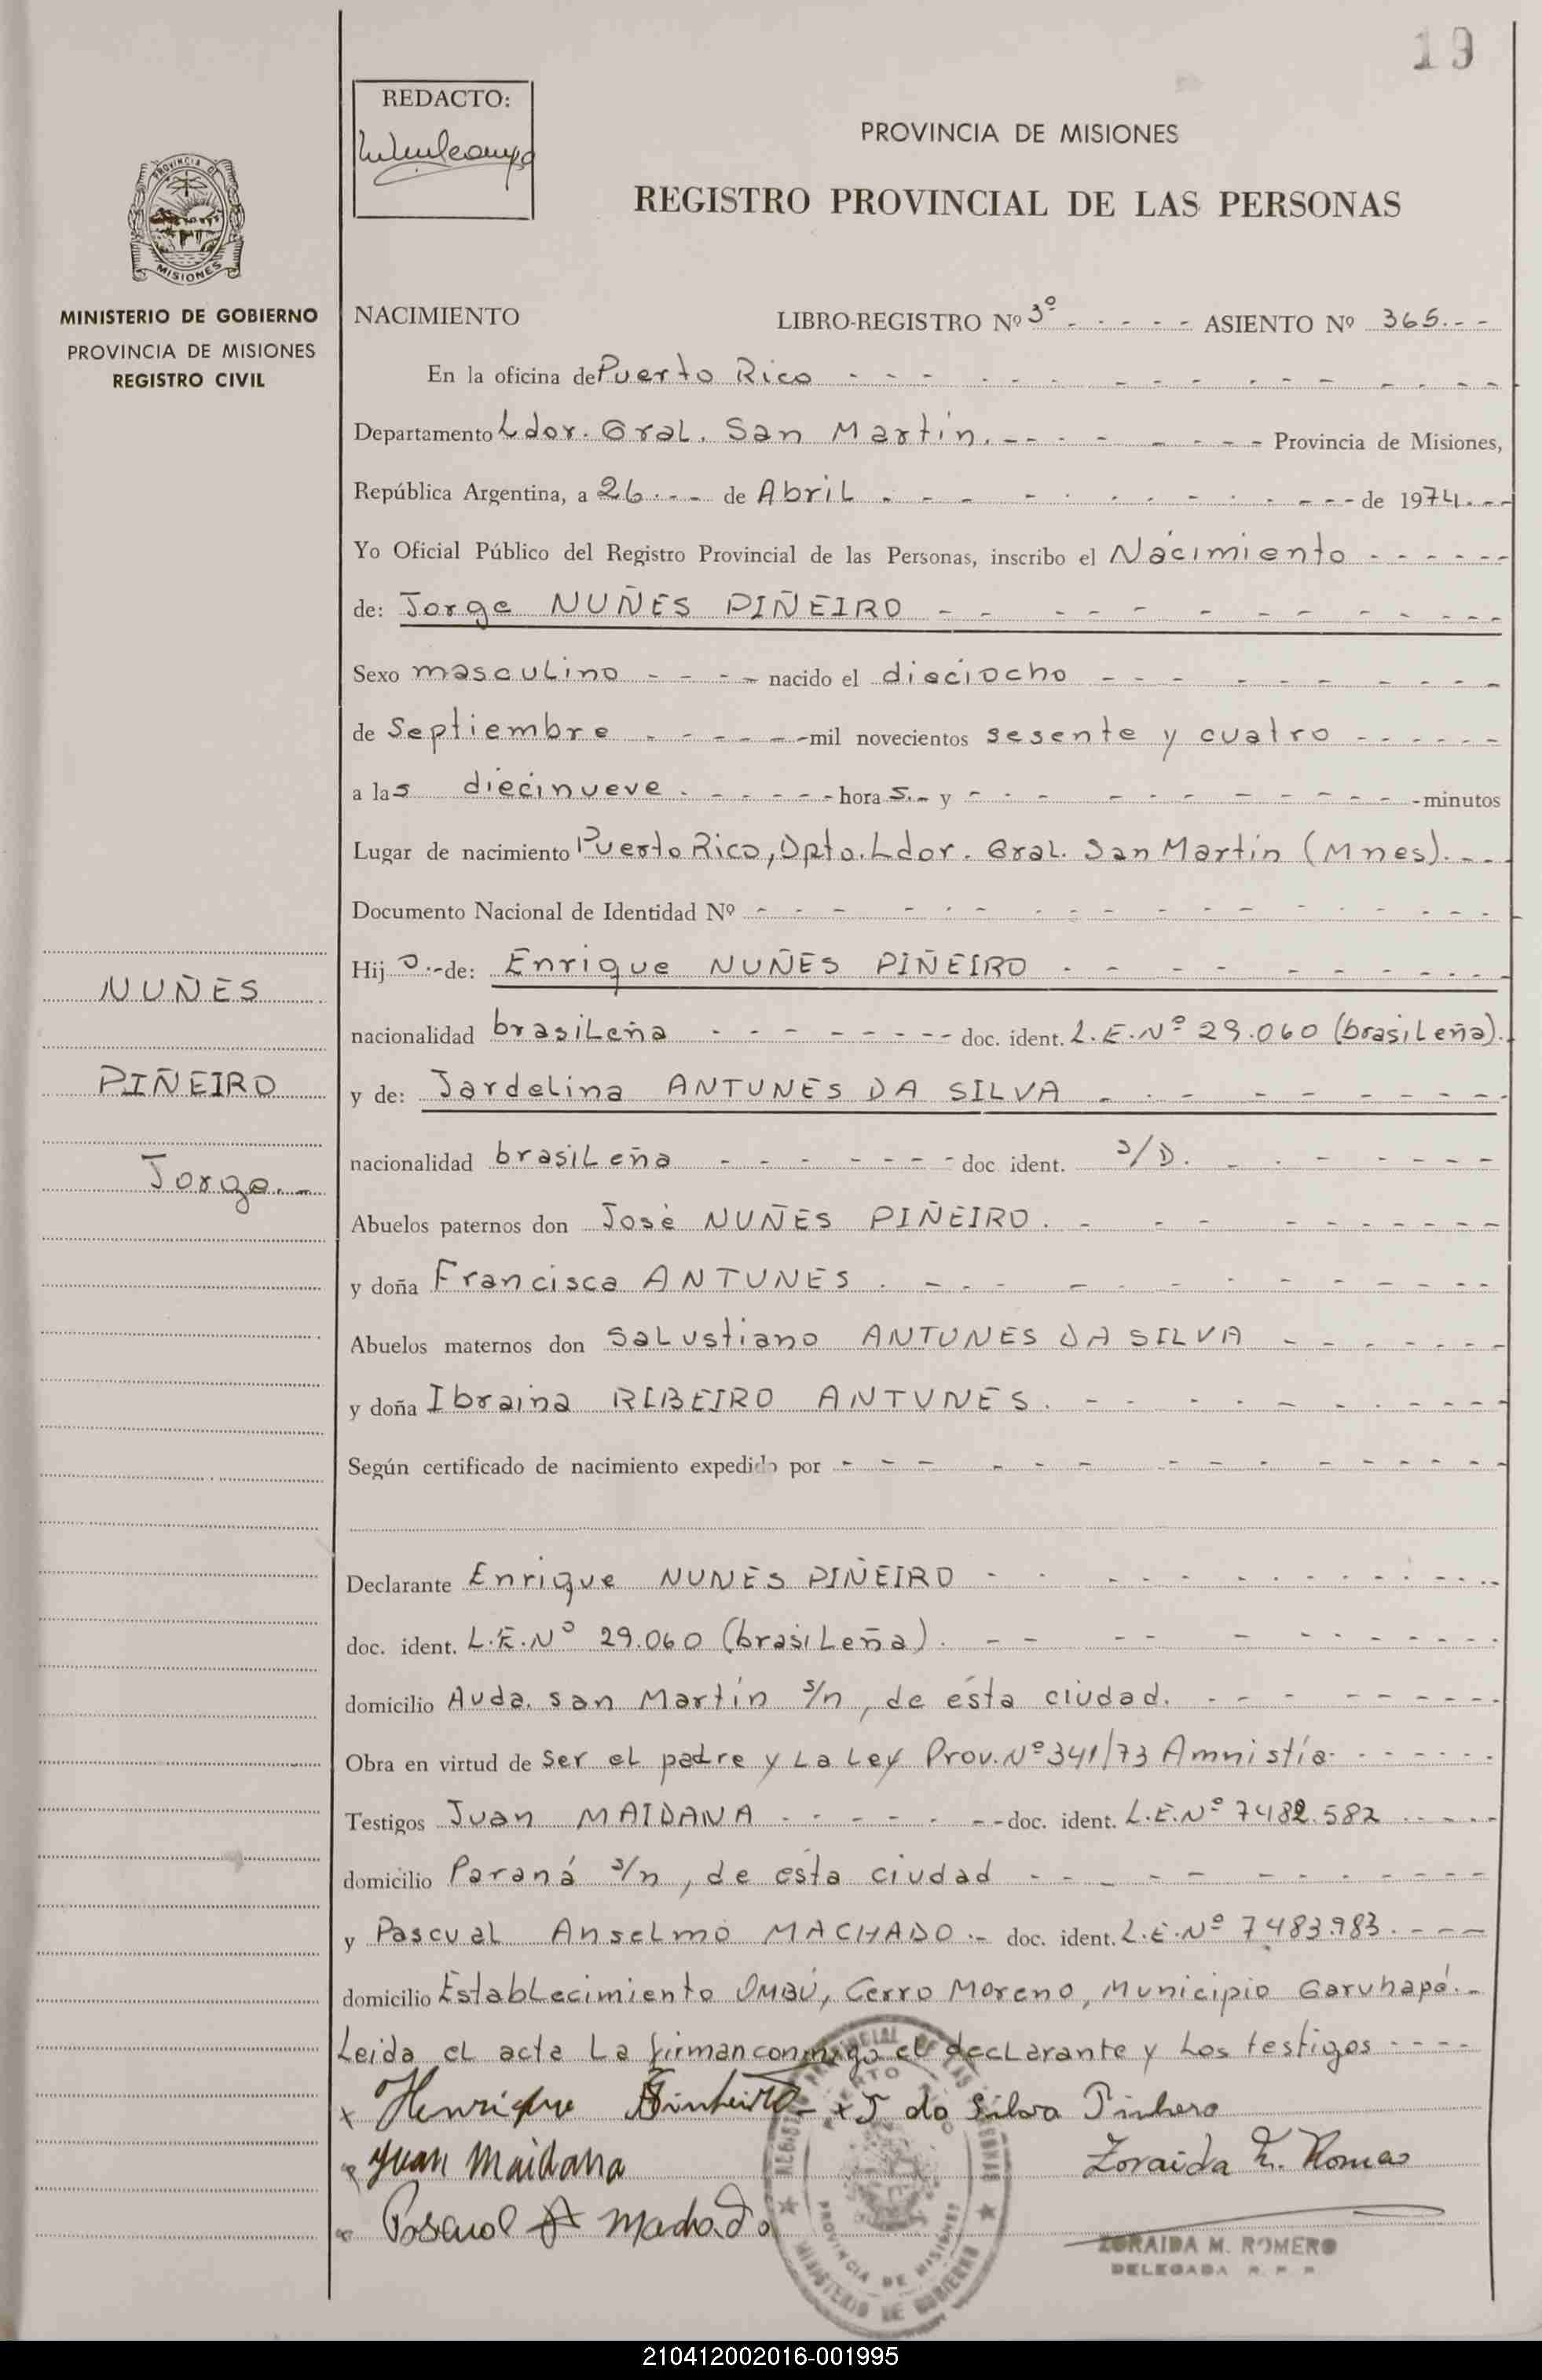 19
REDACTO:
PROVINCIA DE MISIONES
REGISTRO PROVINCIAL DE LAS PERSONAS
PROVINCIA DE
MISIONES
MINISTERIO DE GOBIERNO
PROVINCIA DE MISIONES
REGISTRO CIVIL
NACIMIENTO LIBRO-REGISTRO Nº 3º - - - - - ASIENTO Nº 365. - -
En la oficina de Puerto Rico
Departamento Ldor. Gral. San Martín. - - - Provincia de Misiones,
República Argentina, a 26. - - de Abril - - - de 1974. - -
Yo Oficial Público del Registro Provincial de las Personas, inscribo el Nacimiento - - -
de: Jorge NUÑES PIÑEIRO - - -
Sexo masculino - - - nacido el dieciocho - - -
de Septiembre - - - mil novecientos sesente y cuatro - - -
a las diecinueve - - - horas. - y - - - minutos
Lugar de nacimiento Puerto Rico, Dpto. Ldor. Gral. San Martín (Mnes). - -
Documento Nacional de Identidad Nº - - -
Hijo. - de: Enrique NUÑES PIÑEIRO - - -
nacionalidad brasileña - - - doc. ident. L.E.Nº 29.060 (brasileña).
y de: Jardelina ANTUNES DA SILVA - - -
nacionalidad brasileña - - - doc. ident. S/D. - - -
Abuelos paternos don José NUÑES PIÑEIRO. - - -
y doña Francisca ANTUNES. - - -
Abuelos maternos don Salustiano ANTUNES DA SILVA - - -
y doña Ibraina RIBEIRO ANTUNES. - - -
Según certificado de nacimiento expedido por - - -
Declarante Enrique NUNES PIÑEIRO - - -
doc. ident. L.E.Nº 29.060 (brasileña). - - -
domicilio Avda. San Martín s/n, de ésta ciudad. - - -
Obra en virtud de ser el padre y la Ley Prov. Nº 341/73 Amnistía - - -
Testigos Juan MAIDANA - - - doc. ident. L.E.Nº 7482.582 - - -
domicilio Paraná s/n, de ésta ciudad - - -
y Pascual Anselmo MACHADO. - doc. ident. L.E.Nº 7.483.983. - - -
domicilio Establecimiento OMBÚ, Cerro Moreno, Municipio Garuhapé. -
Leida el acta la firman conmigo el declarante y los testigos - - -
x Henrique Pinheiro - x J do Silva Pinhero
Juan Maidana
Zoraida M. Romero
Pascual A Machado
ZORAIDA M. ROMERO
DELEGADA R. P. P.
PROVINCIA DE MISIONES
MINISTERIO DE GOBIERNO
NUÑES
PIÑEIRO
Jorge. -
210412002016-001995